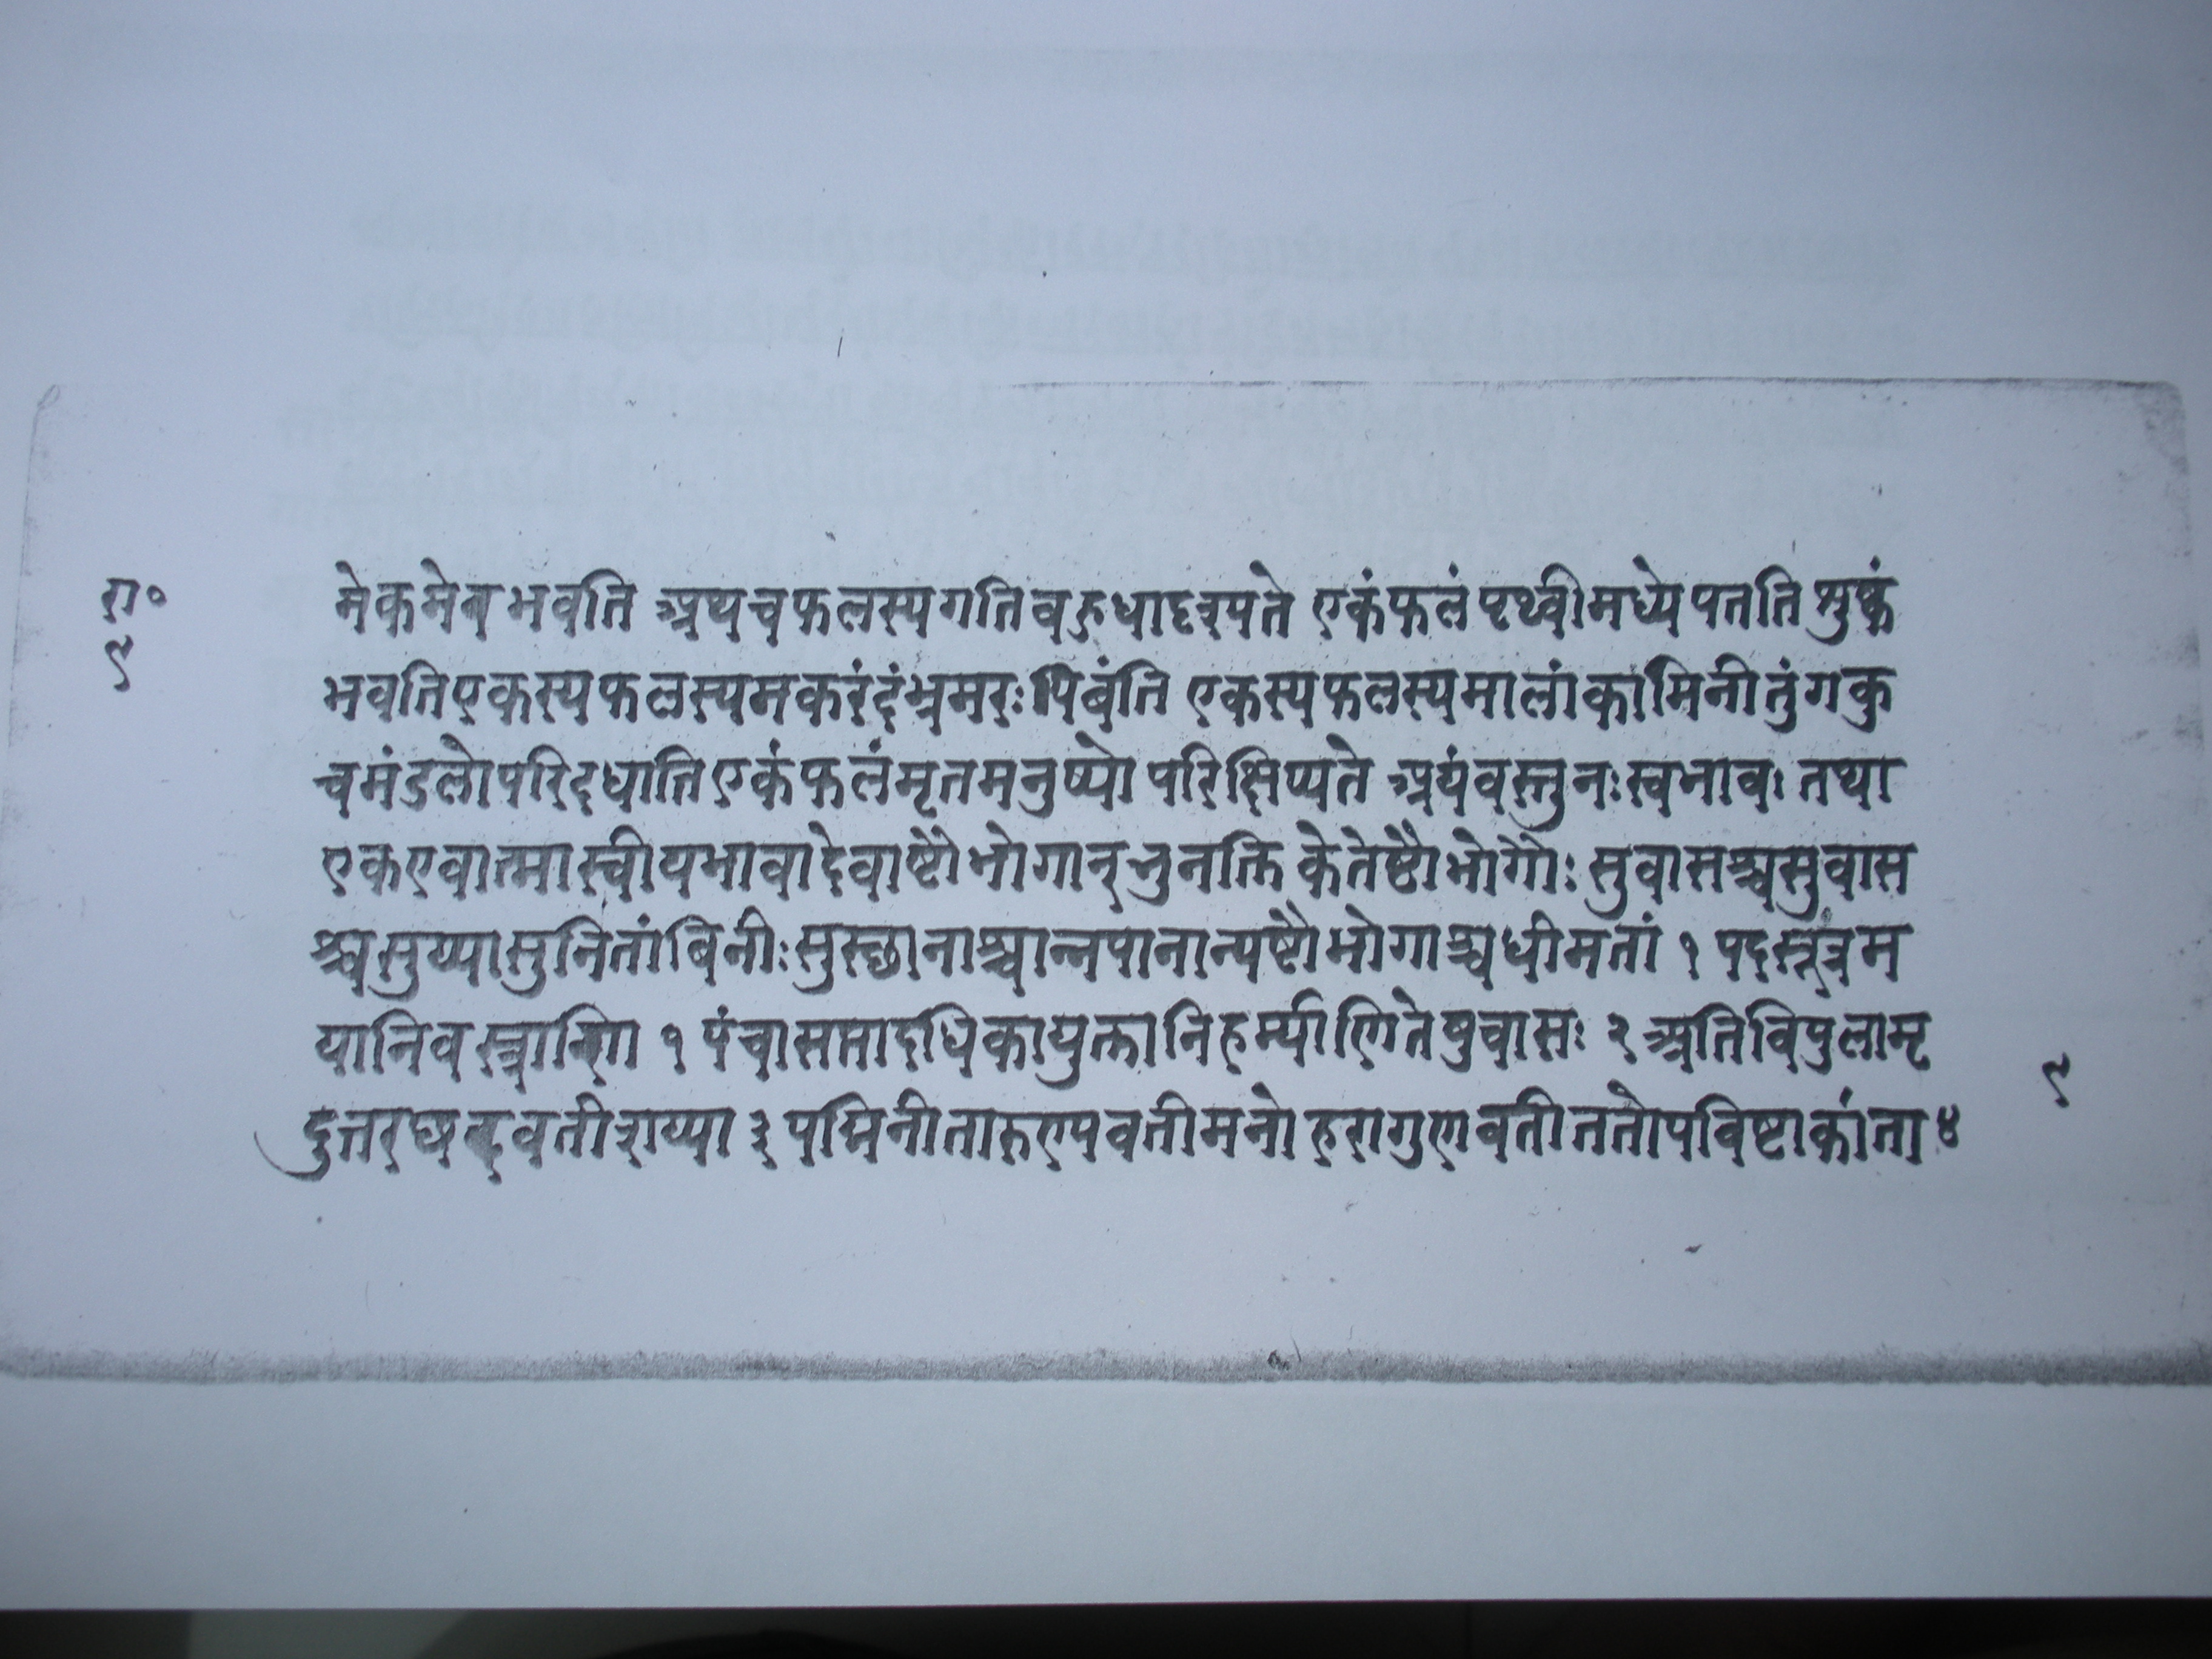 रा०
९
मेकमेव भवति अथ च फलस्य गति बहुधा दृश्यते एकं फलं पृथ्वीमध्ये पतति शुष्कं
भवति एकस्य फलस्य मकरंदं भ्रमरः पिबंति एकस्य फलस्य मालां कामिनी तुंगकु
चमंडलोपरि दधाति एकं फलं मृतमनुष्यो परि क्षिप्यते अयं वस्तुनः स्वभावः तथा
एक एवात्मा स्वीयभावादेवाष्टौ भोगान् भुनक्ति के तेष्टौ भोगौः सुवासश्च सुवास
श्च सुय्या सुनितांबिनीः सुस्छानाश्चान्नपानान्यष्टौ भोगाश्च धीमतां १ पदसूत्रम
यानि वस्त्राणि १ पंचासप्तादधिकायुक्तानि हर्म्याणि तेषु वासः २ अतिविपुलामृ
दुत्तरछदवती शय्या ३ पद्मिनी तारुण्यवती मनोहरा गुणवती नतोपविष्टा कांता ४
९